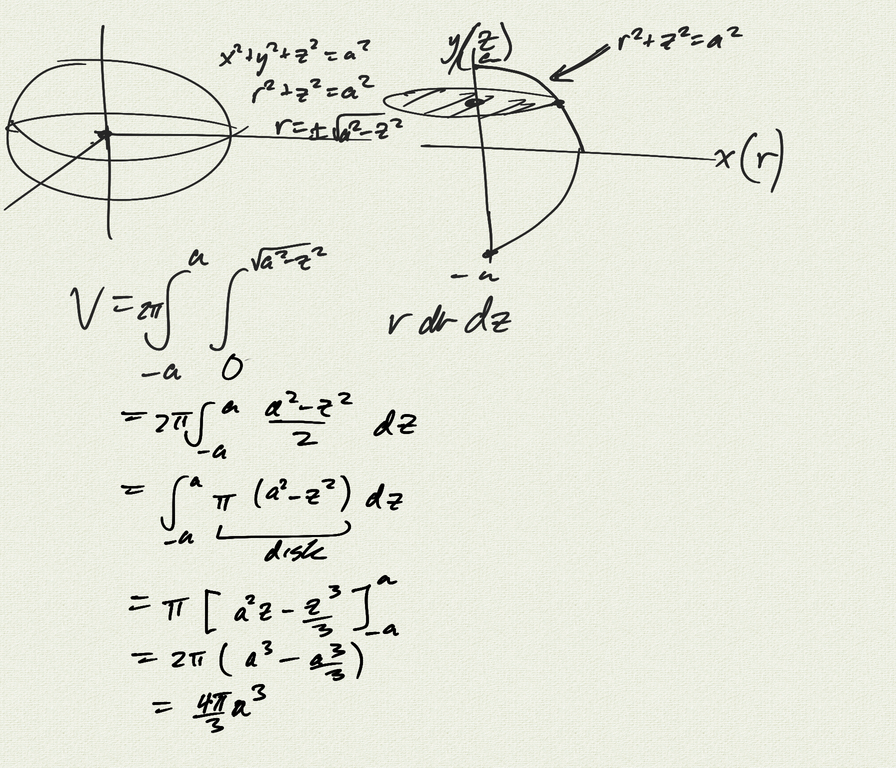 x²+y²+z²=a²
r²+z²=a²
r=±√(a²-z²)
y(z)
a
r²+z²=a²
x(r)
-a
V = 2π ∫_{-a}^{a} ∫_{0}^{√(a²-z²)} r dr dz
= 2π ∫_{-a}^{a} (a²-z²)/2 dz
= ∫_{-a}^{a} π (a²-z²) dz
disk
= π [a²z - z³/3]_{-a}^{a}
= 2π (a³ - a³/3)
= 4π/3 a³